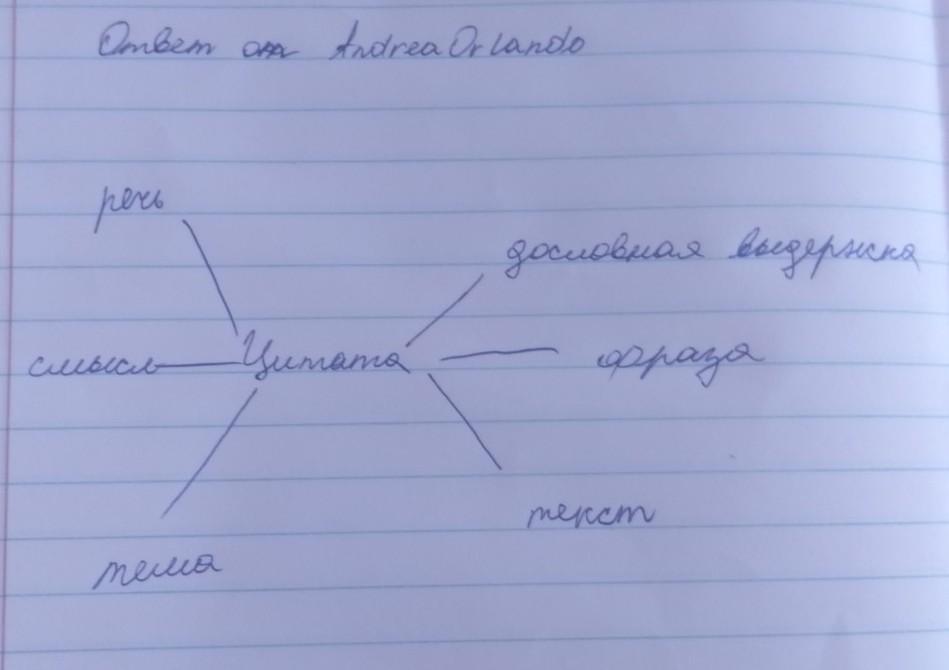 Ответ от AndreaOrlando
речь
дословная выдержка
смысл
Цитата
фраза
текст
тема